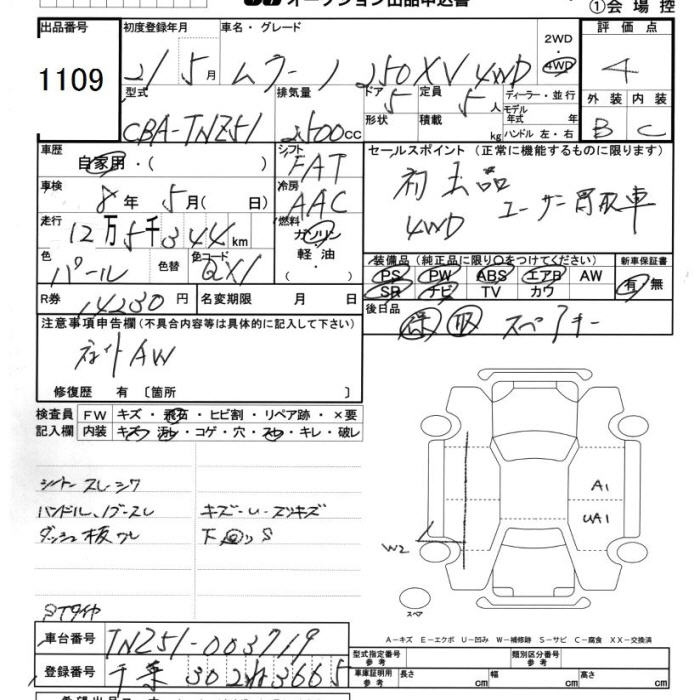 オークション出品申込書
①会場控
出品番号 初度登録年月 車名・グレード 2WD 4WD 評価点
1109 21 5月 ムラーノ 250XV 4WD 4
型式 排気量 ドア 5 定員 5人 ディーラー・並行 外装 内装
CBA-TNZ51 2500cc 形状 積載 kg モデル年式 年 ハンドル 左・右 B C
車歴 自家用・( ) シフト FAT セールスポイント(正常に機能するものに限ります)
車検 8年 5月( 日) 冷房 AAC 初出品 ユーザー買取車
走行 12万5千344km 燃料 ガソリン・軽油・( ) 4WD
色 パール 色替 色コード QX1 装備品(純正品に限り○をつけてください) 新車保証書
PS PW ABS エアB AW 有 無
SR ナビ TV カワ
R券 14230円 名変期限 月 日 後日品 保 取 スペアキー
注意事項申告欄(不具合内容等は具体的に記入して下さい)
AW
修復歴 有 〔箇所 〕
検査員 FW キズ・飛石・ヒビ割・リペア跡・×要
記入欄 内装 キズ・汚レ・コゲ・穴・スレ・キレ・破レ
シートスレ・シワ
ハンドル、ノブスレ キズ・U・スリキズ
ダッシュ板ワレ 下回りS
A1
UA1
W2
スペア
STタイヤ
A-キズ E-エクボ U-凹み W-補修跡 S-サビ C-腐食 XX-交換済
車台番号 TNZ51-003719 型式指定番号 参考 類別区分番号 参考
登録番号 千葉 302 3665 車庫証明用 参考 長さ cm 幅 cm 高さ cm